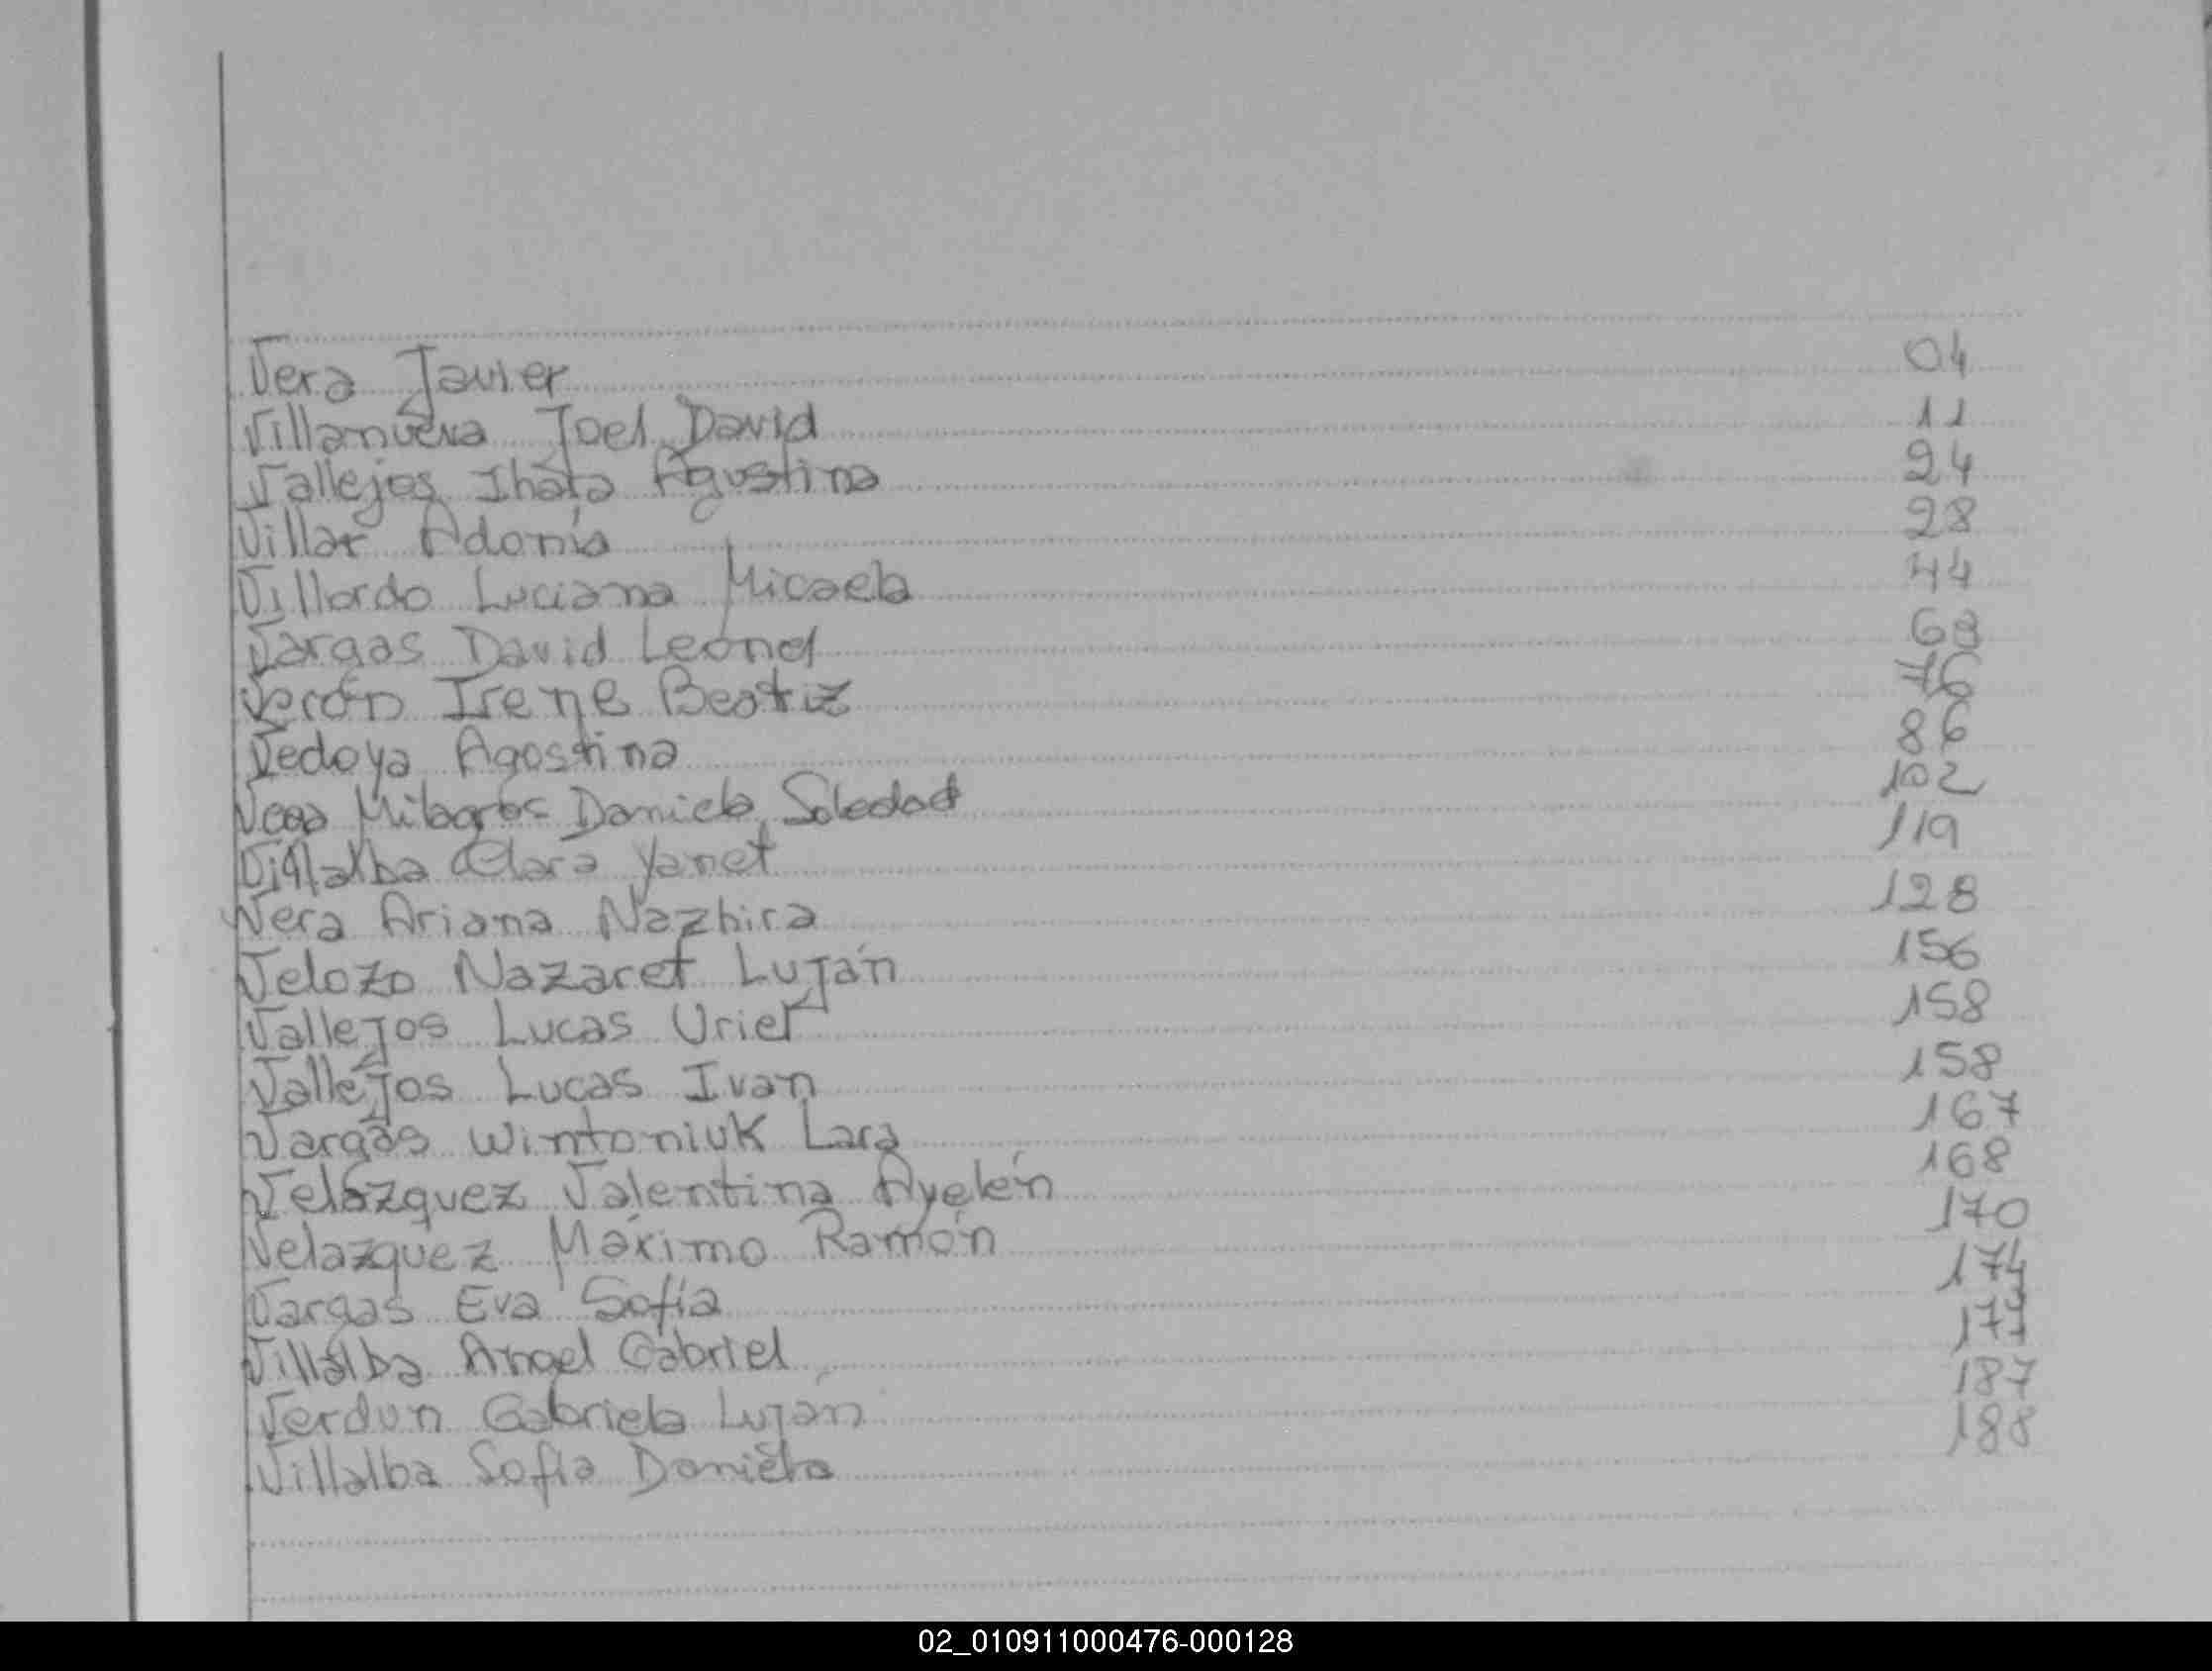 Vera Javier 04
Villanueva Joel David 11
Vallejos Ihara Agustina 24
Villar Adonis 28
Villordo Luciana Micaela 44
Vargas David Leonel 69
Verón Irene Beatriz 76
Vedoya Agostina 86
Vega Milagros Daniela Soledad 102
Villalba Clara Yanet 119
Vera Ariana Nazhira 128
Velozo Nazaret Luján 156
Vallejos Lucas Uriel 158
Vallejos Lucas Ivan 158
Vargas Wintoniuk Lara 167
Velázquez Valentina Ayelén 168
Velazquez Máximo Ramón 170
Vargas Eva Sofía 174
Villalba Angel Gabriel 177
Verdun Gabriela Luján 187
Villalba Sofia Daniela 188
02_010911000476-000128